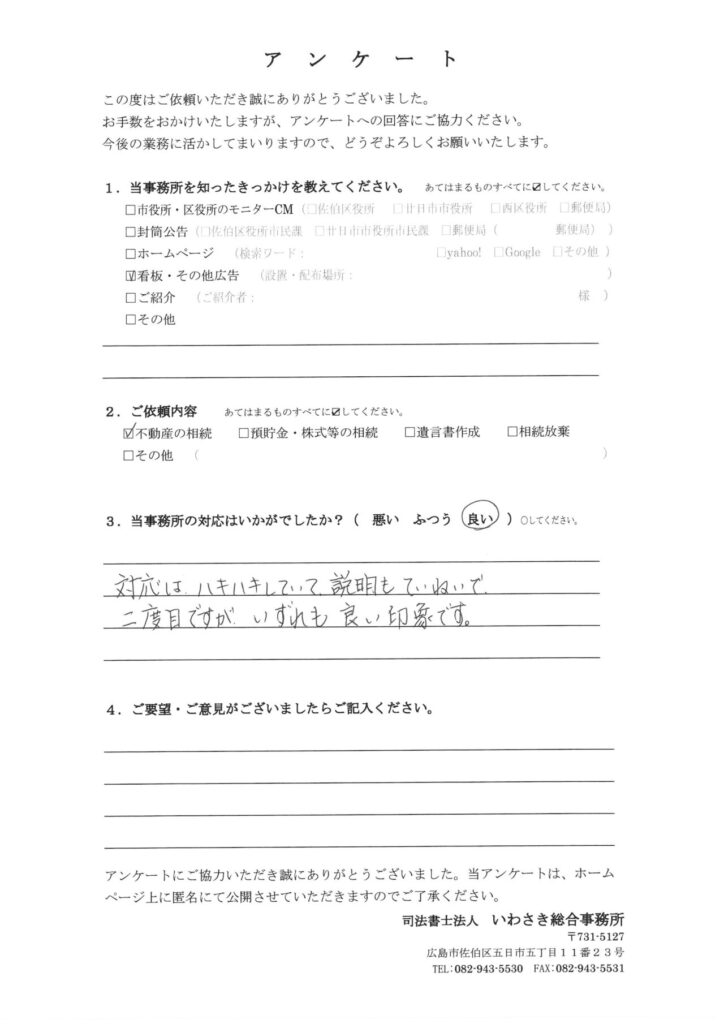 アンケート
この度はご依頼いただき誠にありがとうございました。
お手数をおかけいたしますが、アンケートへの回答にご協力ください。
今後の業務に活かしてまいりますので、どうぞよろしくお願いいたします。
１．当事務所を知ったきっかけを教えてください。 あてはまるものすべてに☑してください。
□市役所・区役所のモニターCM （□佐伯区役所 □廿日市市役所 □西区役所 □郵便局）
□封筒広告（□佐伯区役所市民課 □廿日市市役所市民課 □郵便局（ 郵便局））
□ホームページ （検索ワード： □yahoo! □Google □その他）
☑看板・その他広告 （設置・配布場所： ）
□ご紹介 （ご紹介者： 様 ）
□その他
２．ご依頼内容 あてはまるものすべてに☑してください。
☑不動産の相続 □預貯金・株式等の相続 □遺言書作成 □相続放棄
□その他 （ ）
３．当事務所の対応はいかがでしたか？（ 悪い ふつう 良い ）○してください。
対応は、ハキハキしていて、説明もていねいで、
二度目ですが、いずれも良い印象です。
４．ご要望・ご意見がございましたらご記入ください。
アンケートにご協力いただき誠にありがとうございました。当アンケートは、ホーム
ページ上に匿名にて公開させていただきますのでご了承ください。
司法書士法人 いわさき総合事務所
〒731-5127
広島市佐伯区五日市五丁目１１番２３号
TEL:082-943-5530 FAX:082-943-5531